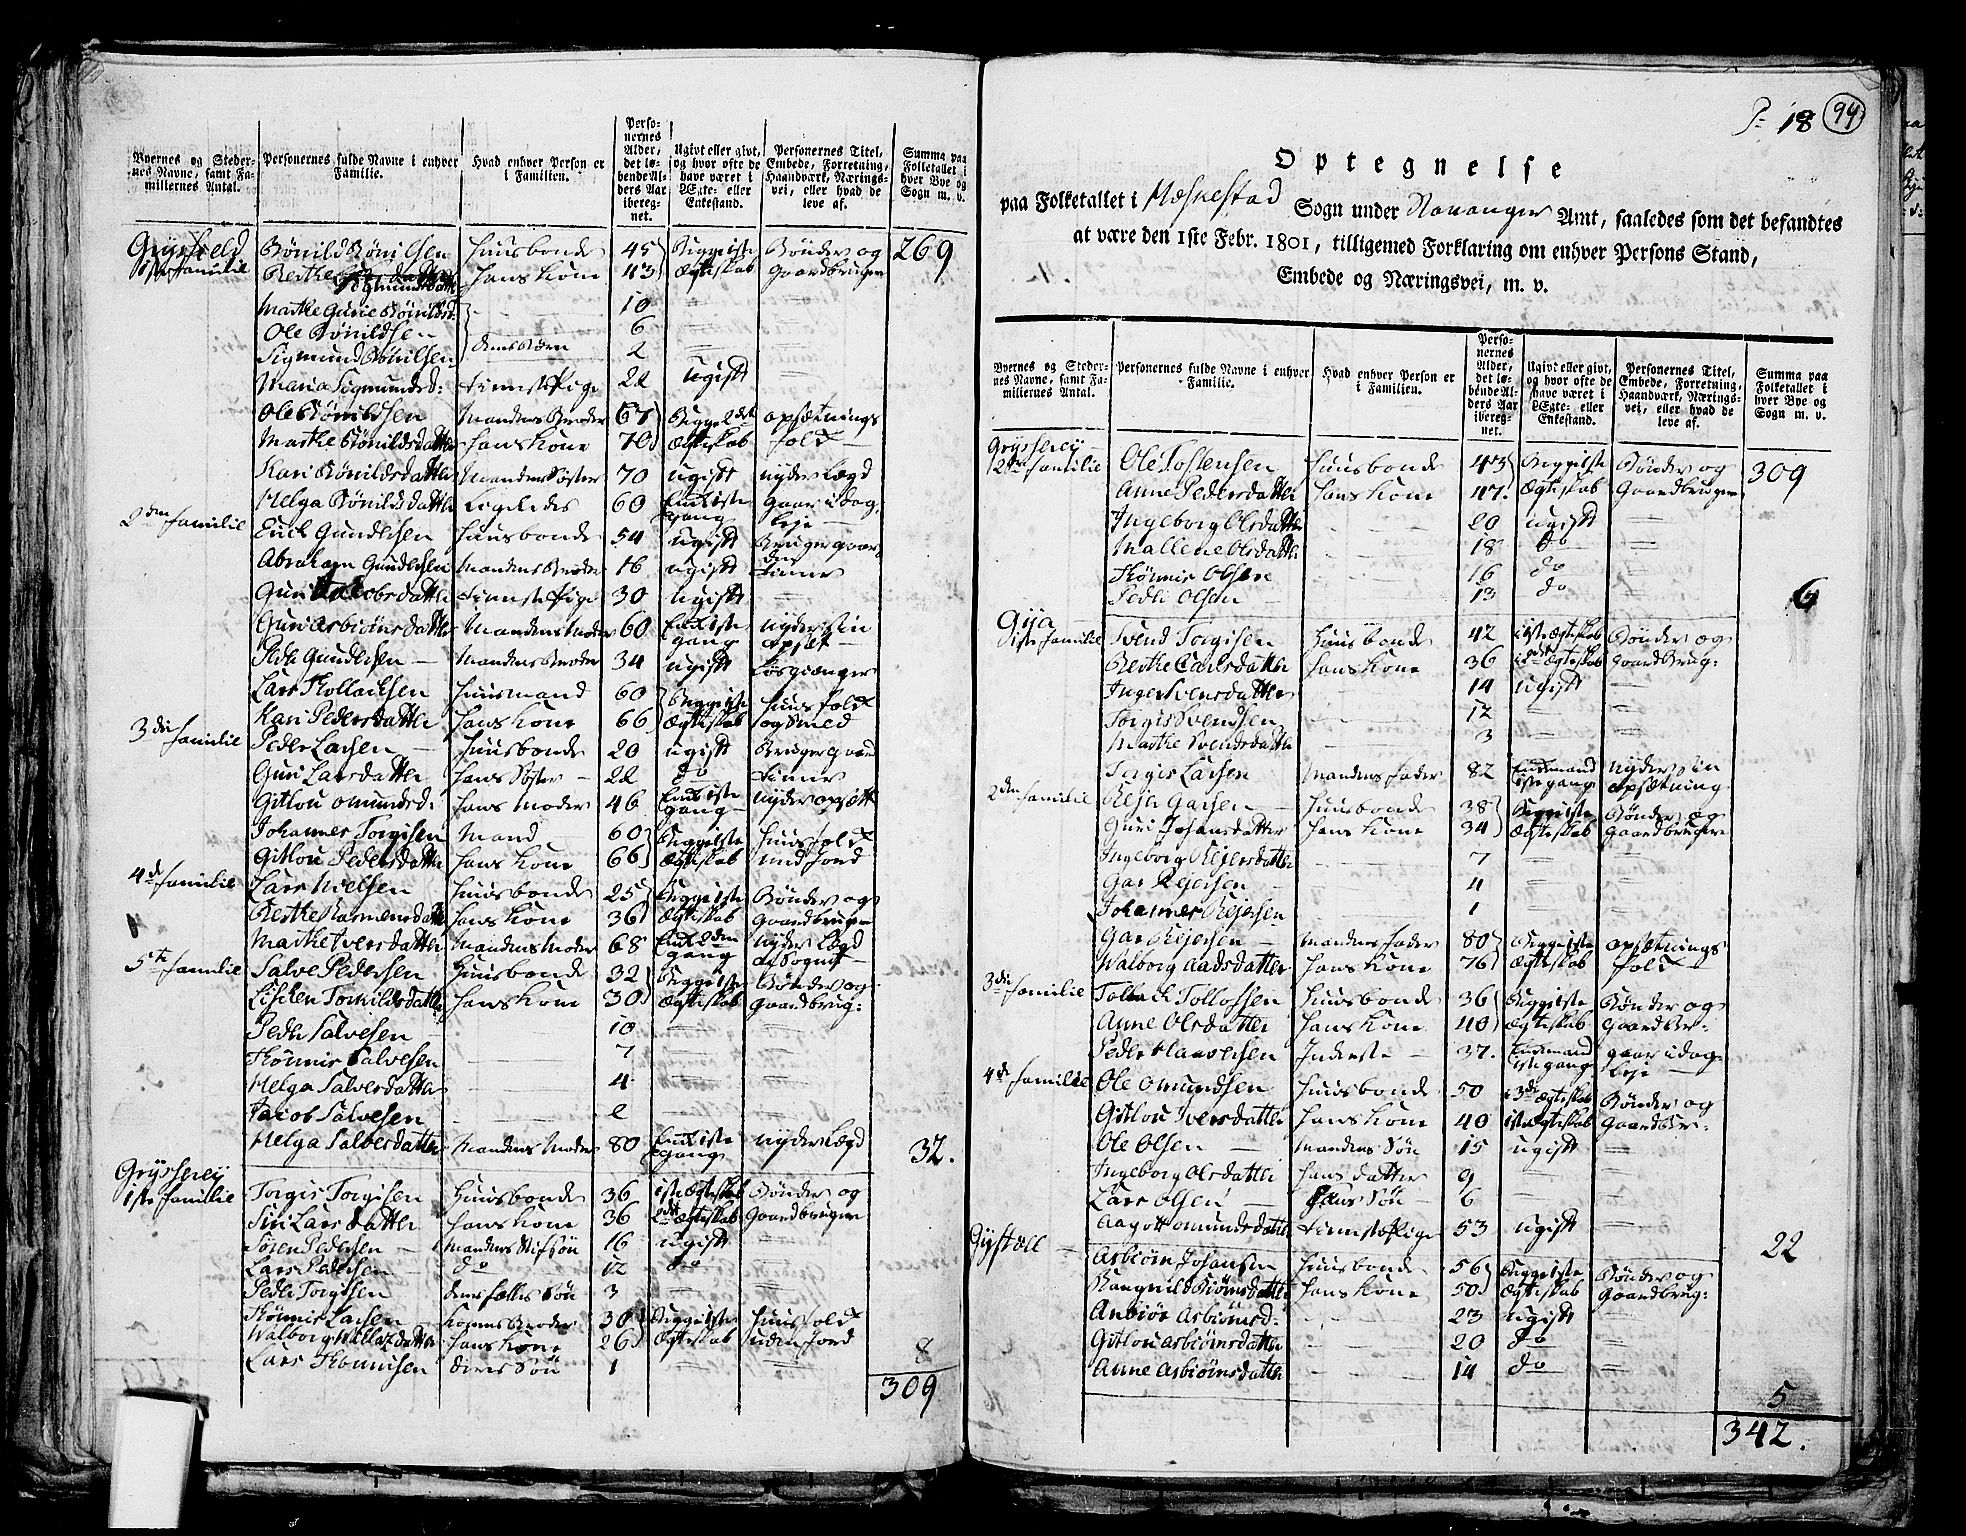 Byernes og Steder-
nes Navne, samt Fa-
miliernes Antal.
Personernes fulde Navne i enhver
Familie.
Hvad enhver Person er
i Familien.
Perso-
nernes
Alder,
det lø-
bende Al-
ders Aar
ibereg-
net.
Ugivt eller givt,
og hvor ofte de
have været i
Ægte- eller
Enkestand.
Personernes Titel,
Embede, Forretning,
Haandværk, Nærings-
vei, eller hvad de
leve af.
Summa paa
Folketallet i
hver Bye og
Sogn m. v.
1ste Familie Huusbonde 45 Begge iste Bønder og 269
Berthe Sigmundsdatter Hans Kone 43 Ægteskab Gaardbruger
Marthe Gurie 10
Ole 6
Sigmund deres Børn 2
Maria Sigmundsd: tienestePige 22 ugift
Ole Mandens Broder 67 Begge 2det opsætnings
Marthe hans Kone 70 Ægteskab folk
Kari Mandens Søster 70 ugift nyder Lægd
Helga Ligeledes 60 Enke iste gang gaar i dag leje
2den Familie Erick Gundersen Huusbonde 54 ugift Bruger gaar-
Abraham Gundersen Mandens Broder 16 ugift tiener
Guri Jacobsdatter tieneste Pige 30 ugift
Guri Asbiønsdatter Mandens Moder 60 Enke iste gang nyder sin opsæt
Peder Gundersen Mandens Broder 34 ugift Løsgiænger
Lars Tollaksen Huusmand 60 Begge iste huus folk
Kari Pedersdatter hans Kone 66 Ægteskab og Smed
3die Familie Peder Larsen Huusbonde 20 ugift Bruger gaard
Guri Larsdatter hans Søster 22 do tiener
Gitlou Omundsd: hans Moder 46 Enke iste gang nyder opsætt
Johannes Torgisen Mand 60 Begge iste huusfolk
Gitlou Pedersdatter hans Kone 66 Ægteskab med Jord
4de Familie Lars Nielsen Huusbonde 25 Begge iste Bønder og
Berthe hans Kone 36 Ægteskab Gaardbruger
Marthe Iversdatter Mandens Moder 68 Enke 2den gang nyder Lægd af Sognet
5te Familie Salve Pedersen Huusbonde 32 Begge iste Bønder og
Tomildsdatter hans Kone 30 Ægteskab Gaardbrug:
Peder Salvesen 10
Tönnis Salvesen 7
Helga Salvesdatter 4
Jacob Salvesen 2
Helga Salvesdatter Mandens Moder 80 Enke iste gang nyder Lægd 32.
Gryssereÿ
1ste Familie Torgis Torgisen Huusbonde 36 1ste Ægteskab Bønder og
Siri Larsdatter hans Kone 36 2det Ægteskab Gaardbruger
Søren Pedersen Mandens Stifsøn 16 ugift
Lars Pedersen do 12 do
Peder Torgisen deres fælles Søn 3
Tönnis Larsen Konens Broder 30 Begge iste huusfolk
Walborg hans Kone 26 Ægteskab uden Jord
Lars Tönnisen deres Søn 1 8
309
P= 18 94
Optegnelse
paa Folketallet i Sogn under Amt, saaledes som det befandtes
at være den 1ste Febr. 1801, tilligemed Forklaring om enhver Persons Stand,
Embede og Næringsvei, m. v.
Byernes og Steder-
nes Navne, samt Fa-
miliernes Antal.
Personernes fulde Navne i enhver
Familie.
Hvad enhver Person er
i Familien.
Perso-
nernes
Alder,
det lø-
bende Al-
ders Aar
ibereg-
net.
Ugivt eller givt,
og hvor ofte de
have været i
Ægte- eller
Enkestand.
Personernes Titel,
Embede, Forretning,
Haandværk, Nærings-
vei, eller hvad de
leve af.
Summa paa
Folketallet i
hver Bye og
Sogn m. v.
Gryssereÿ
2den Familie Ole Tostensen Huusbonde 43 Begge iste Bønder og 309
Anne Pedersdatter hans Kone 47. Ægteskab Gaardbruger
Ingeborg Olsdatter 20 ugift
Mallene Olsdatter 18 do
Tönnis Olsen 16 do
Pedli Olsen 13 do 6
Gya
1ste Familie Svend Torgisen Huusbonde 42 iste Ægteskab Bønder og
Berthe Carlsdatter hans Kone 36 Ægteskab Gaardbrug:
Inger Svensdatter 14 ugift
Torgis Svendsen 12
Marthe Svendsdatter 3
Torgis Larsen Mandens fader 82 Enkemand iste gang nyder sin opsætning
2den Familie Rejer Garsen Huusbonde 38 Begge iste Bønder og
Guri Johansdatter hans Kone 34 Ægteskab Gaardbruger
Ingeborg Rejersdatter 7
Gar Rejersen 4
Johannes Rejersen 1
Gar Rejersen Mandens fader 80 Begge iste opsætnings
Walborg Aadsdatter hans Kone 76 Ægteskab folk
3die Familie Tollack Tollofsen Huusbonde 36 Begge iste Bønder og
Anne Olsdatter hans Kone 40 Ægteskab Gaardbr-
Peder Inderste 37. Enkemand iste gang gaar i dag leje
4de Familie Ole Omundsen Huusbonde 50 i 3de Ægteskab Bønder og
Gitlou Iversdatter hans Kone 40 iste Ægteskab Gaardbr-
Ole Olsen Mandens Søn 15 ugift
Ingeborg Olsdatter hans datter 9
Lars Olsen hans Søn 6
Aagott Omundsdatter tienestePige 53 ugift 22
Asbiørn Johansen Huusbonde 56 Begge iste Bønder og
Rangnild Biørnsdatter hans Kone 50 Ægteskab Gaardbrug:
Asbiørnsd: 23 ugift
Gitlou Asbiørnsdatter 20 do
Anne Asbiørnsdatter 14 do
5
342.